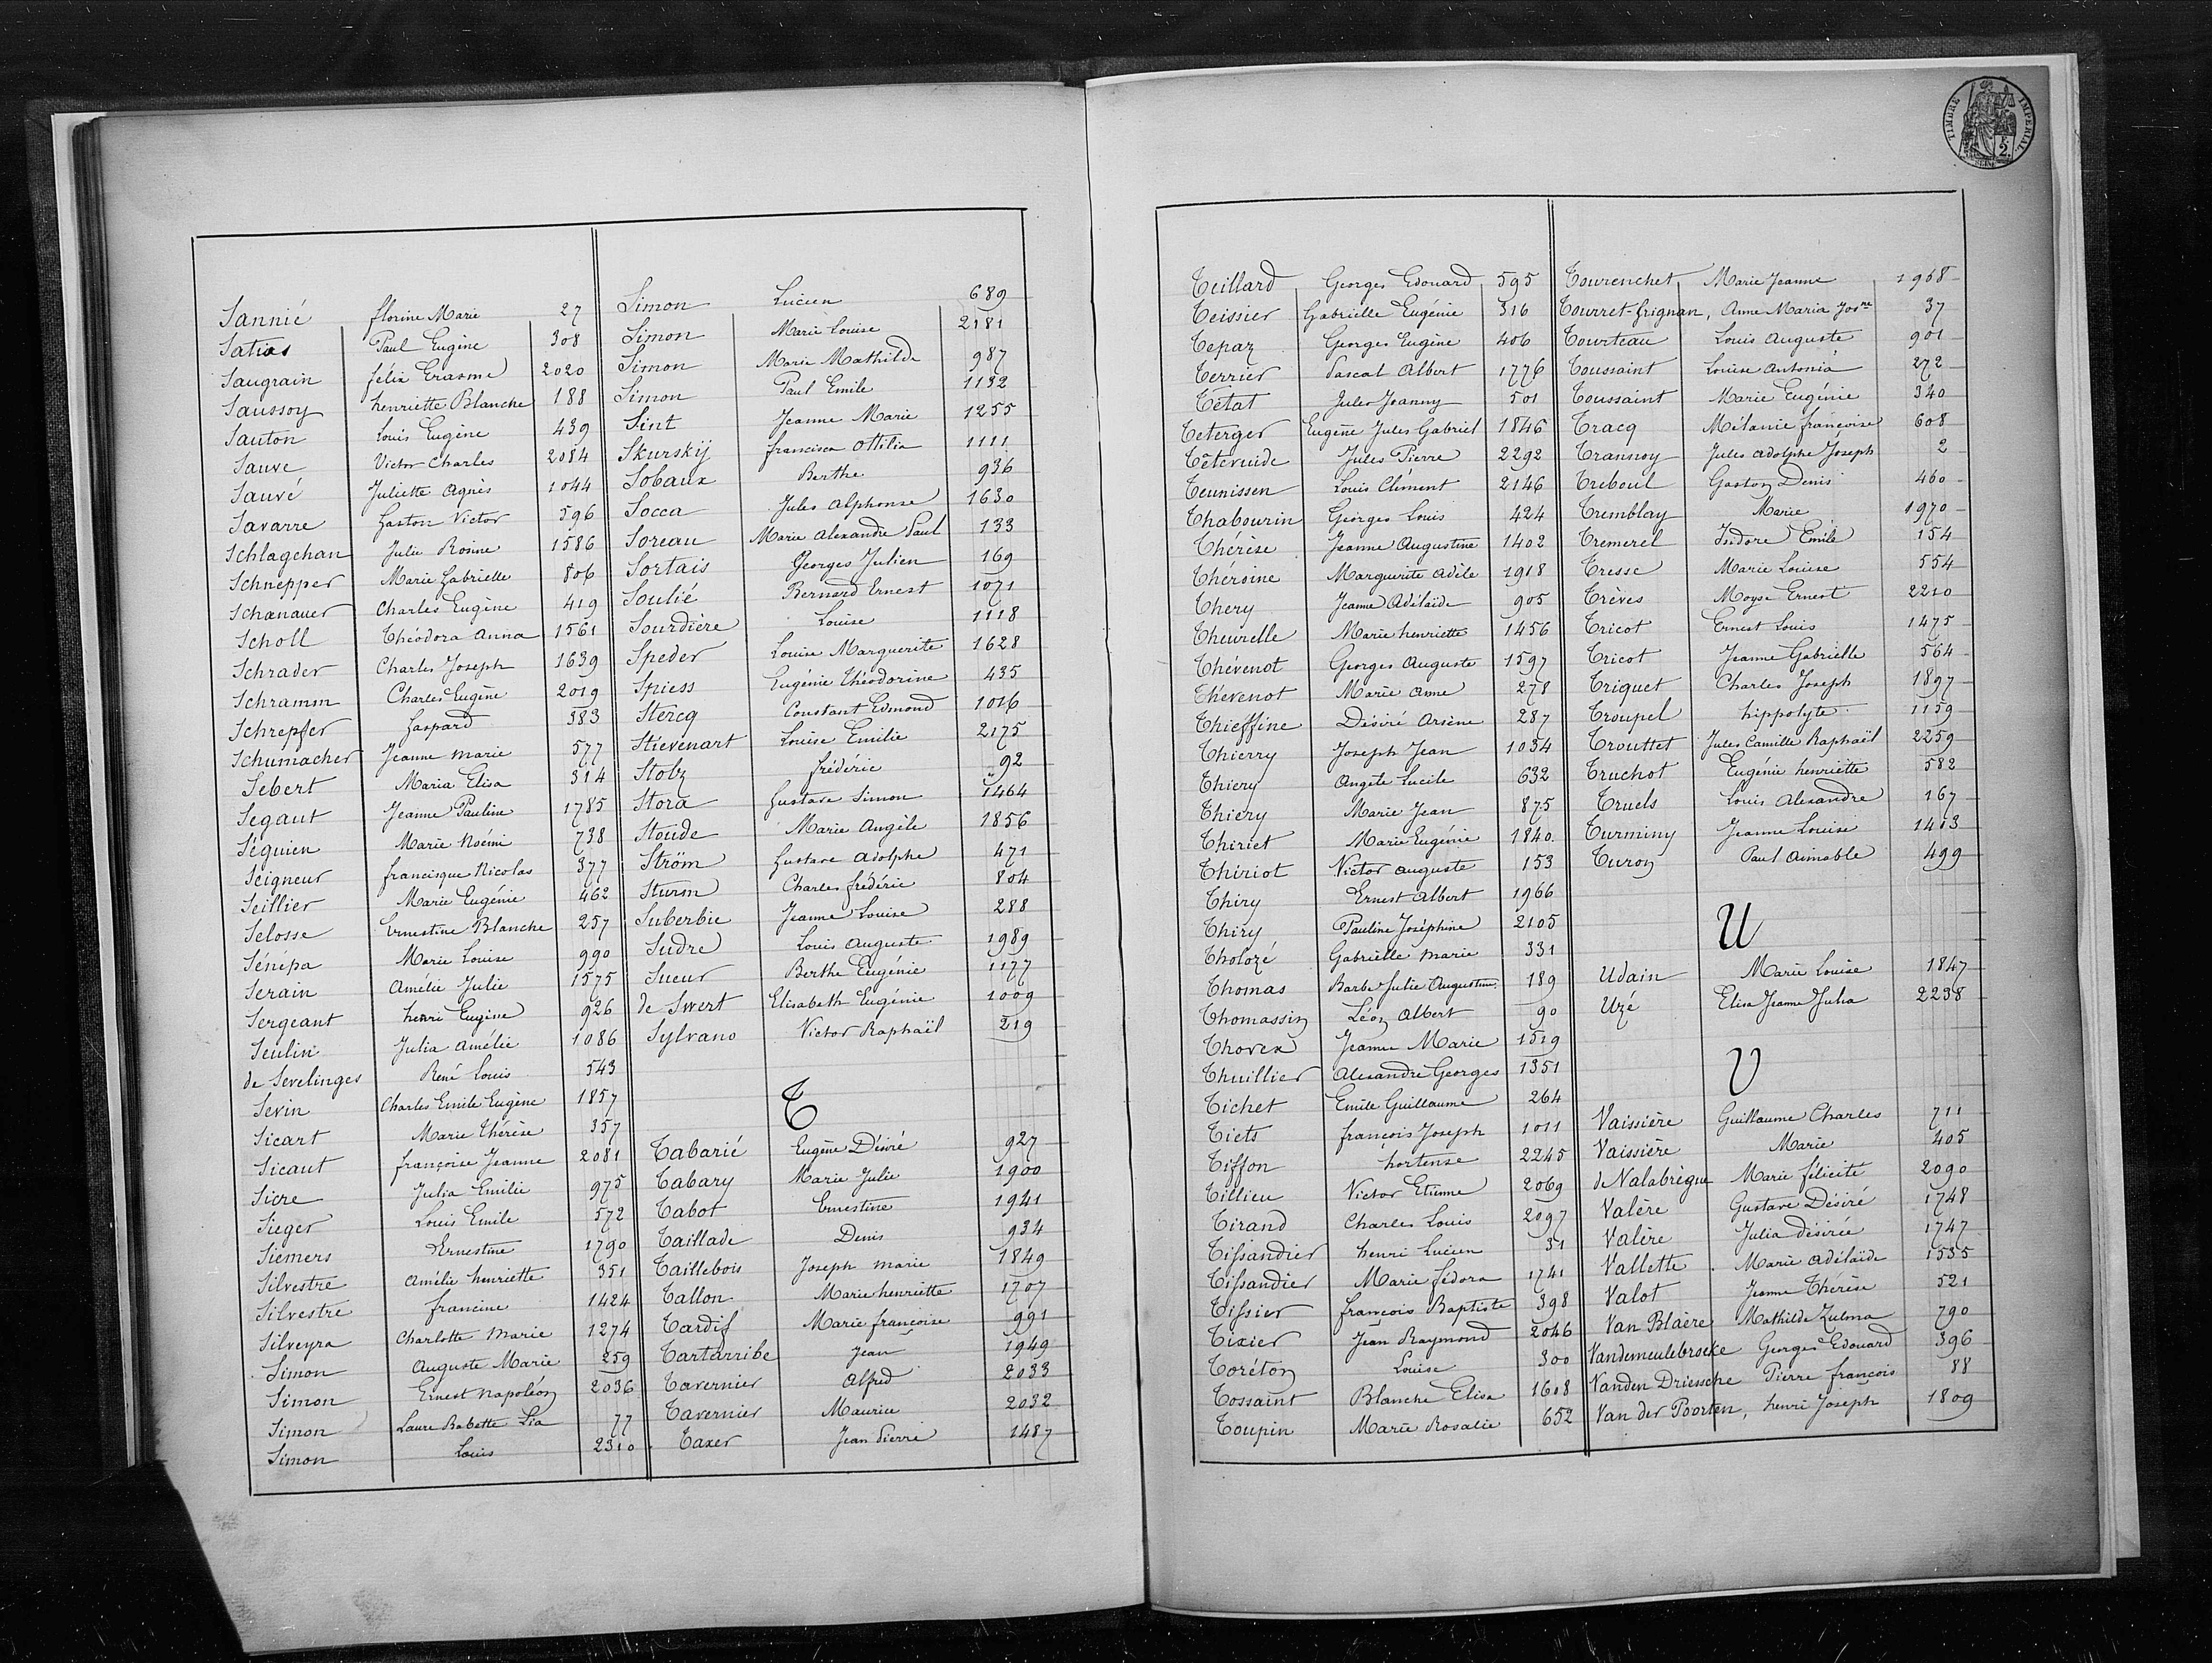 Sannié florine Marie 27
Satias Paul Eugène 308
Saugrain félix Erasme 2020
Saussoy henriette Blanche 188
Sauton Louis Eugène 439
Sauve Victor Charles 2084
Sauvé Juliette Agnès 1044
Savarre Gaston Victor 596
Schlagchan Julie Rosine 1586
Schnepper Marie Gabrielle 806
Schanauer Charles Eugène 419
Scholl Théodora Anna 1561
Schrader Charles Joseph 1639
Schramm Charles Eugène 2019
Schrepfer Gaspard 383
Schumacher Jeanne Marie 577
Sebert Maria Elisa 314
Segaut Jeanne Pauline 1785
Séguien Marie Noémi 738
Seigneur francisque Nicolas 377
Seillier Marie Eugénie 462
Selosse Ernestine Blanche 257
Sénépa Marie Louise 990
Serain Amélie Julie 1575
Sergeant henri Eugène 926
Seulin Julia Amélie 1086
de Sevelinges René Louis 543
Sevin Charles Emile Eugène 1857
Sicart Marie Thérèse 357
Sicaut françoise Jeanne 2081
Sicre Julia Emilie 975
Sieger Louis Emile 572
Siemers Ernestine 1790
Silvestre Amélie henriette 351
Silvestre francine 1424
Silveyra Charlotte Marie 1274
Simon Auguste Marie 259
Simon Ernest Napoléon 2036
Simon Laure Babette Lia 77
Simon Louis 2310
Simon Lucien 689
Simon Marie Louise 2181
Simon Marie Mathilde 987
Simon Paul Emile 1132
Sint Jeanne Marie 1255
Skurskij francisca Ottilia 1111
Sobaux Berthe 936
Socca Jules Alphonse 1630
Soreau Marie Alexandre Paul 133
Sortais Georges Julien 169
Soulié Bernard Ernest 1071
Sourdière Louise 1118
Speder Louise Marguerite 1628
Spiess Eugénie Théodorine 435
Stercq Constant Edmond 1016
Stievenart Louise Emilie 2175
Stolz frédéric 92
Stora Gustave Simon 1464
Stoude Marie Angèle 1856
Ström Gustave Adolphe 471
Sturm Charles frédéric 804
Suberbie Jeanne Louise 288
Sudre Louis Auguste 1989
Sueur Berthe Eugénie 1177
de Swert Elisabeth Eugénie 1009
Sylvano Victor Raphaël 219
T
Tabarié Eugène Désiré 927
Tabary Marie Julie 1900
Tabot Ernestine 1941
Taillade Denis 934
Taillebois Joseph Marie 1849
Tallon Marie henriette 1707
Tardif Marie françoise 991
Tartarribe Jean 1949
Tavernier Alfred 2033
Tavernier Maurice 2032
Taxer Jean Pierre 1487
TIMBRE IMPERIAL
2
Teillard Georges Edouard 595
Teissier Gabrielle Eugénie 316
Tepaz Georges Eugène 406
Terrier Pascal Albert 1776
Tétat Jules Joanny 501
Teterger Eugène Jules Gabriel 1846
Tétevuide Jules Pierre 2292
Teunissen Louis Clément 2146
Thabourin Georges Louis 424
Thérèse Jeanne Augustine 1402
Théroine Marguerite Adèle 1918
Thery Jeanne Adélaïde 905
Theurelle Marie henriette 1456
Thévenot Georges Auguste 1597
Thévenot Marie Anne 278
Thieffine Désiré Arsène 287
Thierry Joseph Jean 1034
Thiery Angèle Lucile 632
Thiery Marie Jean 875
Thiriet Marie Eugénie 1840
Thiriot Victor Auguste 153
Thiry Ernest Albert 1966
Thiry Pauline Joséphine 2105
Tholozé Gabrielle Marie 331
Thomas Barbe Julie Augustine 189
Thomassin Léon Albert 90
Thovex Jeanne Marie 1519
Thuillier Alexandre Georges 1351
Tichet Emile Guillaume 264
Tiets françois Joseph 1011
Tiffon hortense 2245
Tillieu Victor Etienne 2069
Tirand Charles Louis 2097
Tissandier henri Lucien 31
Tissandier Marie fédora 1741
Tissier françois Baptiste 398
Tixier Jean Raymond 2046
Toréton Louise 300
Tossaint Blanche Elisa 1608
Toupin Marie Rosalie 652
Tourenchet Marie Jeanne 1968
Tourret-Grignan, Anne Maria Josne 37
Tourteau Louis Auguste 901
Toussaint Louise Antonia 272
Toussaint Marie Eugénie 340
Tracq Mélanie françoise 608
Trannoy Jules Adolphe Joseph 2
Treboul Gaston Denis 460
Tremblay Marie 1970
Tremerel Isidore Emile 154
Tresse Marie Louise 554
Trèves Moyse Ernest 2210
Tricot Ernest Louis 1475
Tricot Jeanne Gabrielle 564
Triquet Charles Joseph 1897
Troupel hippolyte 1159
Trouttet Jules Camille Raphaël 2259
Truchot Eugénie henriette 582
Truels Louis Alexandre 167
Turminy Jeanne Louise 1403
Turon Paul Aimable 499
U
Udain Marie Louise 1847
Uzé Elisa Jeanne Julia 2238
V
Vaissière Guillaume Charles 711
Vaissière Marie 405
de Valabrègue Marie félicité 2090
Valère Gustave Désiré 1748
Valère Julia désirée 1747
Vallette Marie Adélaïde 1535
Valot Jeanne Thérèse 521
Van Blaère Mathilde Zulma 790
Vandemeulebroeke Georges Edouard 396
Vanden Driessche Pierre françois 88
Van der Poorten, henri Joseph 1809